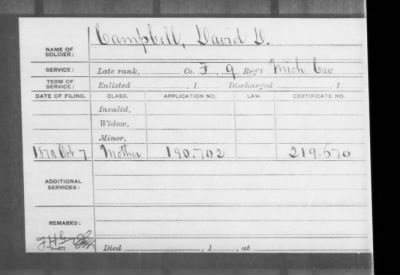 Campbell, David D.
NAME OF
SOLDIER:
SERVICE: Late rank, Co. F, 9 Reg't Mich Cav
TERM OF
SERVICE: Enlisted , 1 Discharged , 1
DATE OF FILING. CLASS. APPLICATION NO. LAW. CERTIFICATE NO.
Invalid,
Widow,
Minor,
1870 Oct 7 Mother 190.702 219.570
ADDITIONAL
SERVICES:
REMARKS:
Died , 1 , at